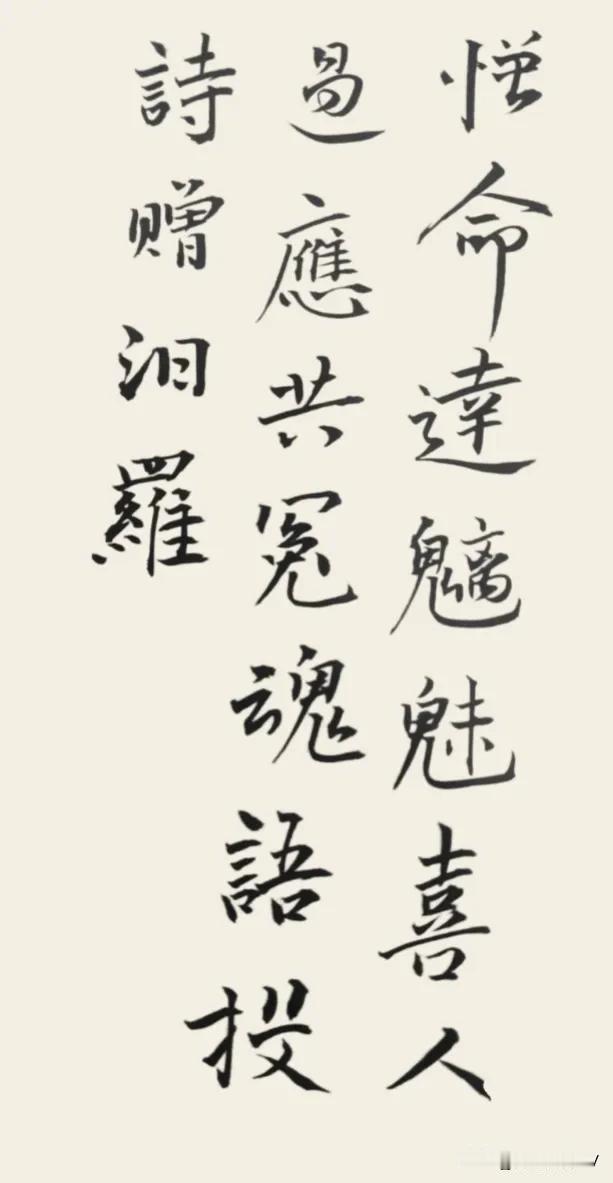 憎命達魑魅喜人
過應共冤魂語投
詩贈汨羅